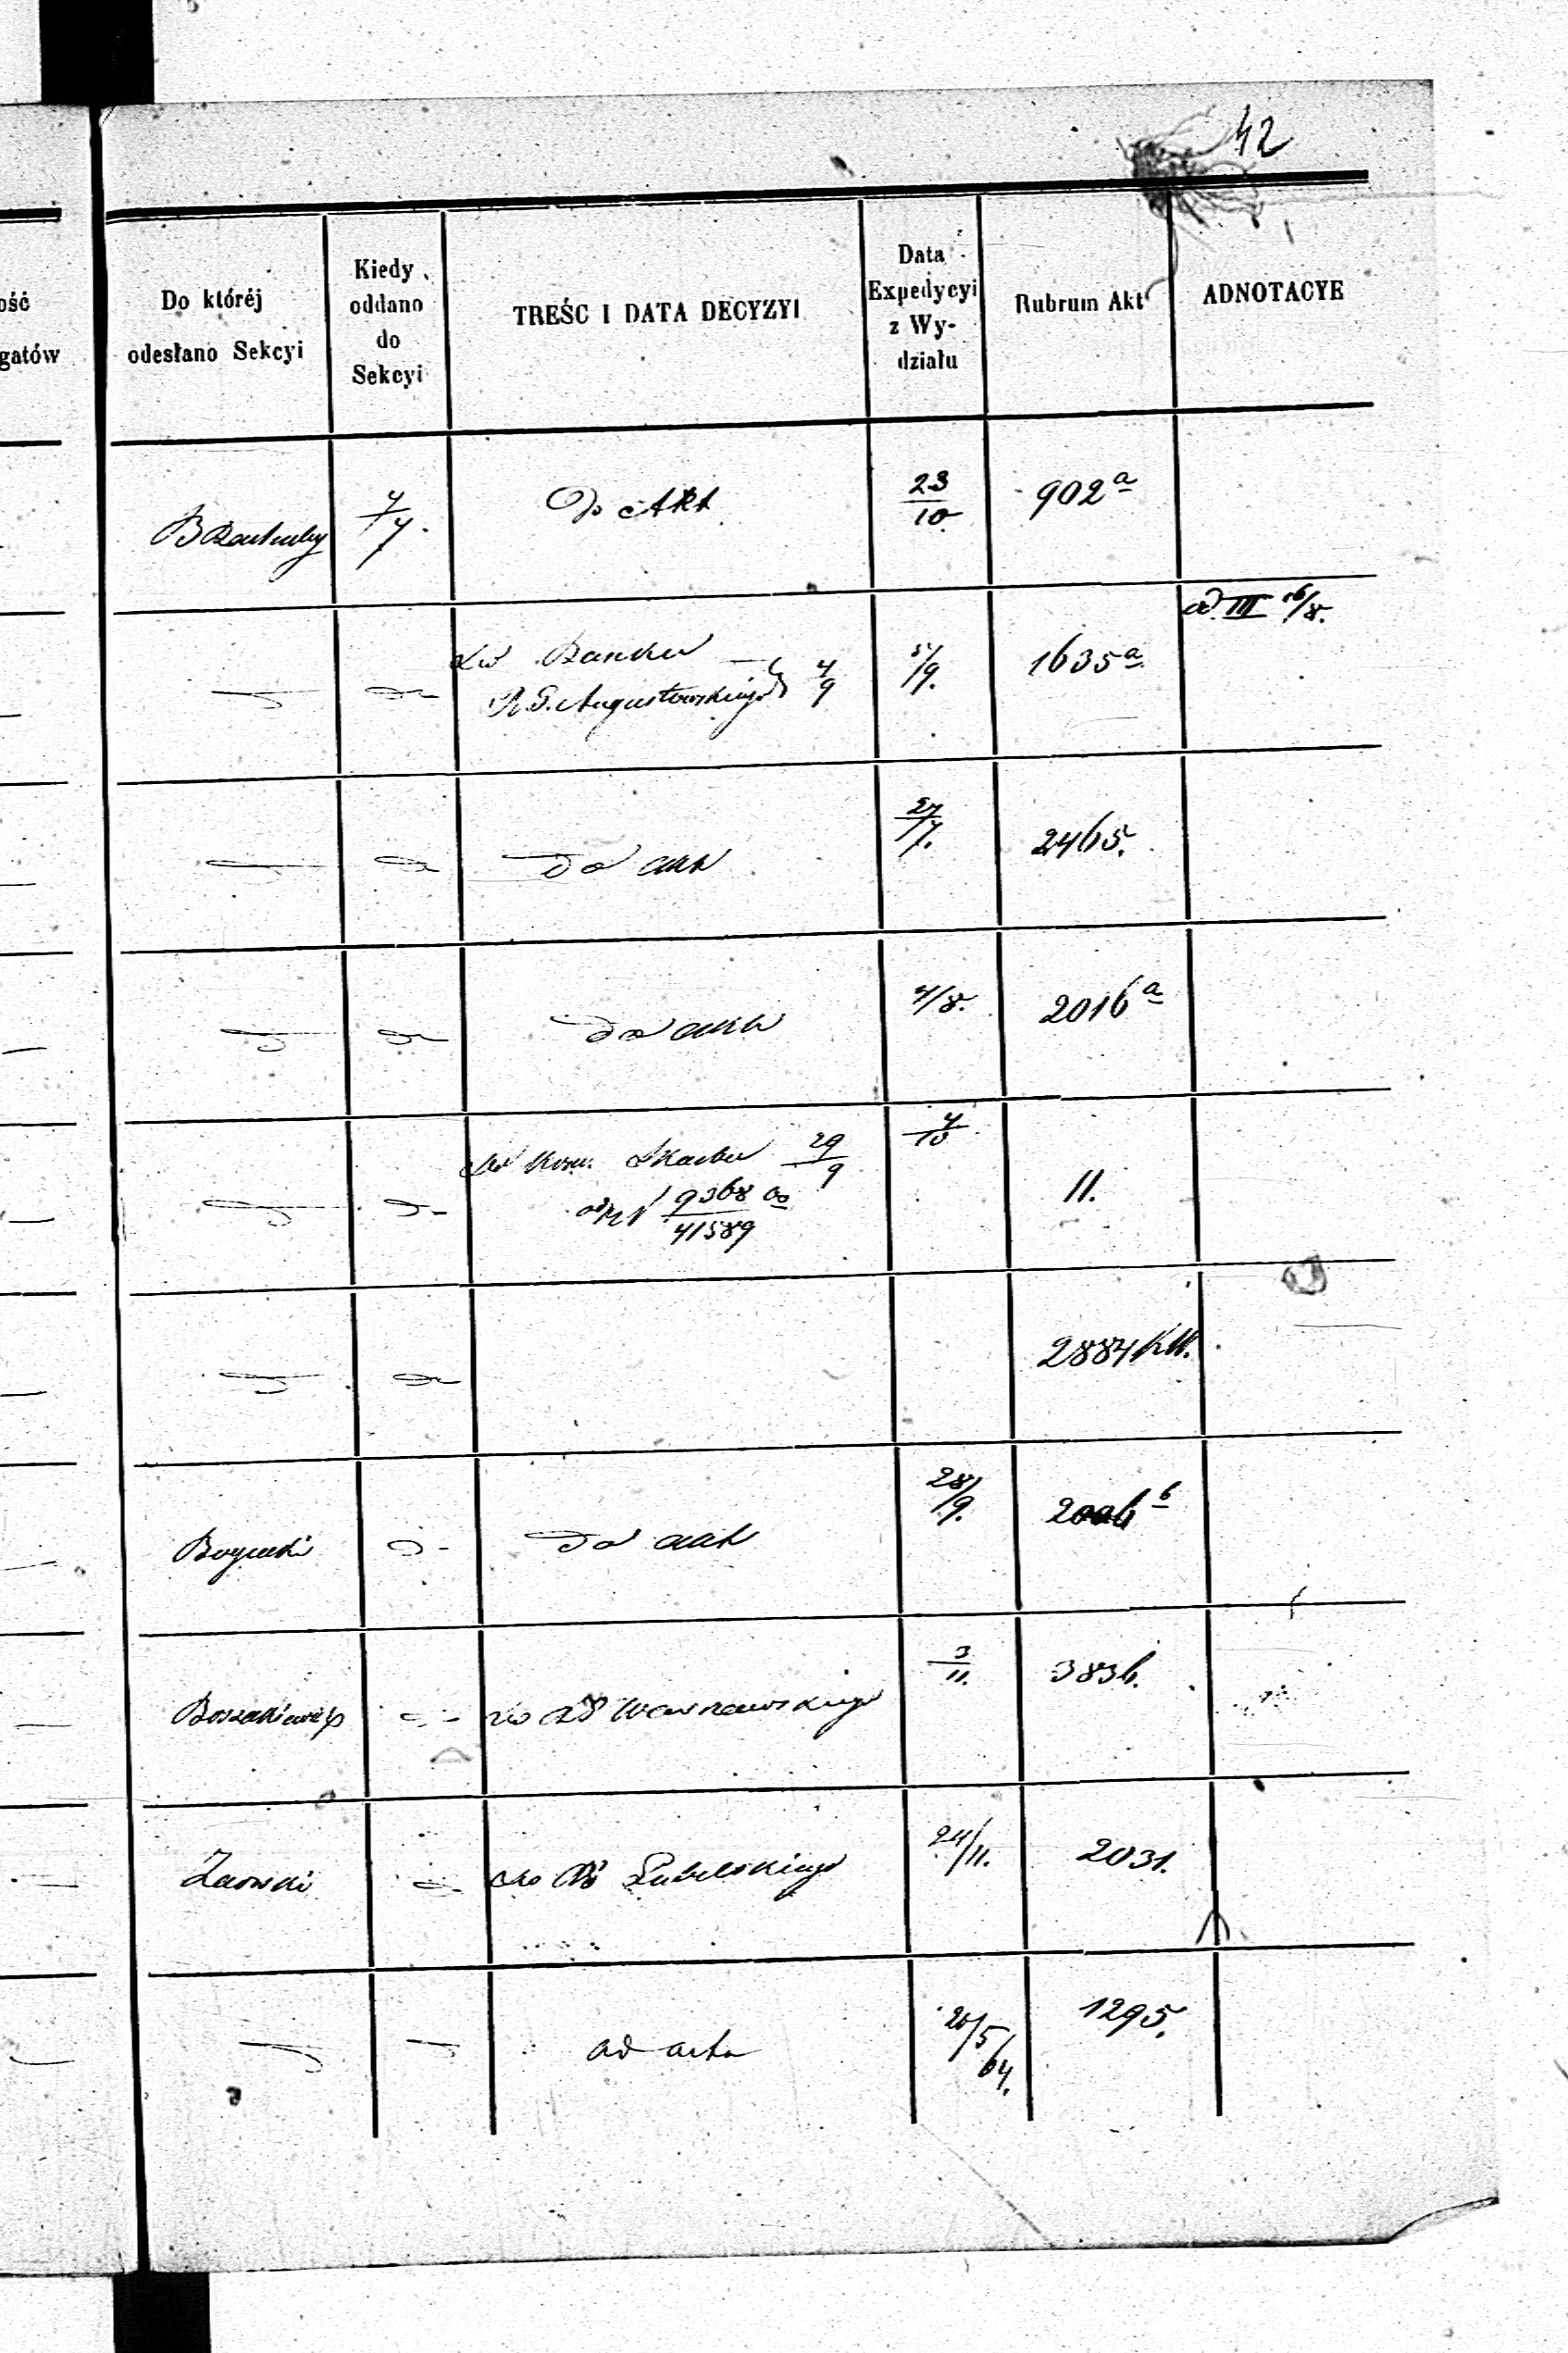 42
ość
gatów
Do któréj
odesłano Sekcyi
Kiedy
oddano
do
Sekcyi
TREŚC I DATA DECYZYI
Data
Expedycyi
z Wy-
działu
Rubrum Akt
ADNOTACYE
7/7.
Do Akt
23/10.
902 a
ad III 16/8.
do Banku
R. G. Augustowskiego
4/9
5/9.
1635 a
do akt
27/7.
2465.
do akt
4/8.
2016 a
do Kom. Skarbu 29/9
N 9368/41589
4/10
11.
2884
do akt
28/9.
b
RG Warszawskiego
3/11.
3836.
do RG Lubelskiego
24/11.
2031.
ad acta
20/5/64.
1295.